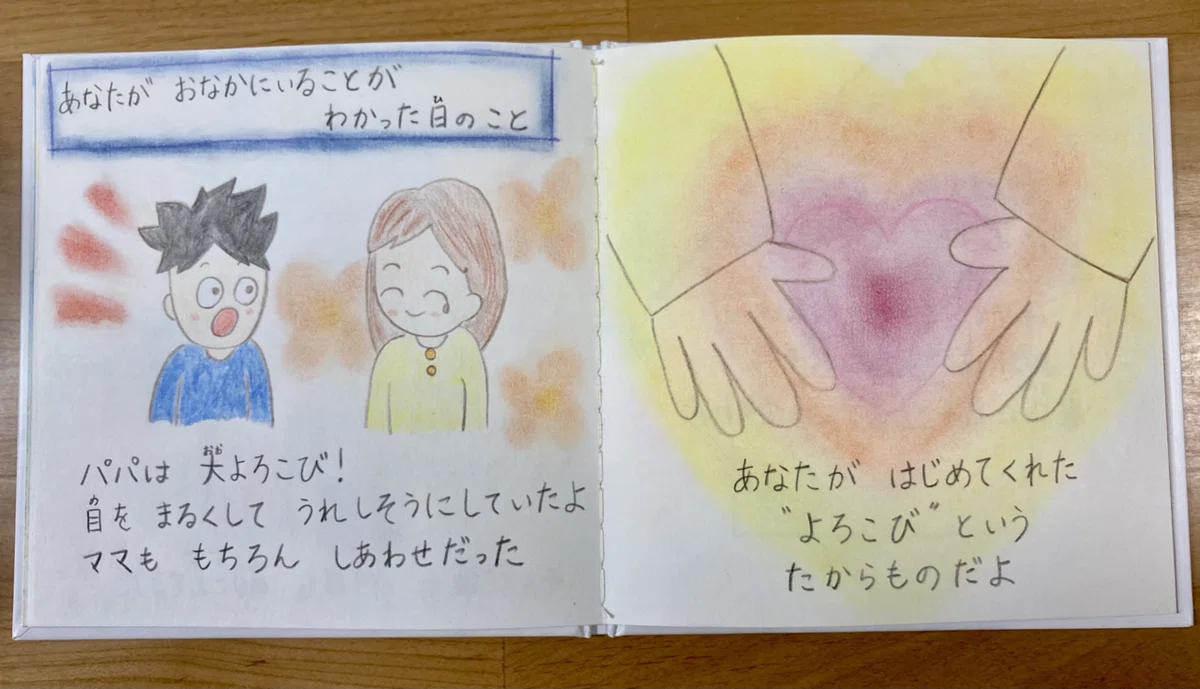 あなたが おなかにいることが
わかった日のこと
パパは 大よろこび!
目を まるくして うれしそうにしていたよ
ママも もちろん しあわせだった
あなたが はじめてくれた
"よろこび"という
たからものだよ